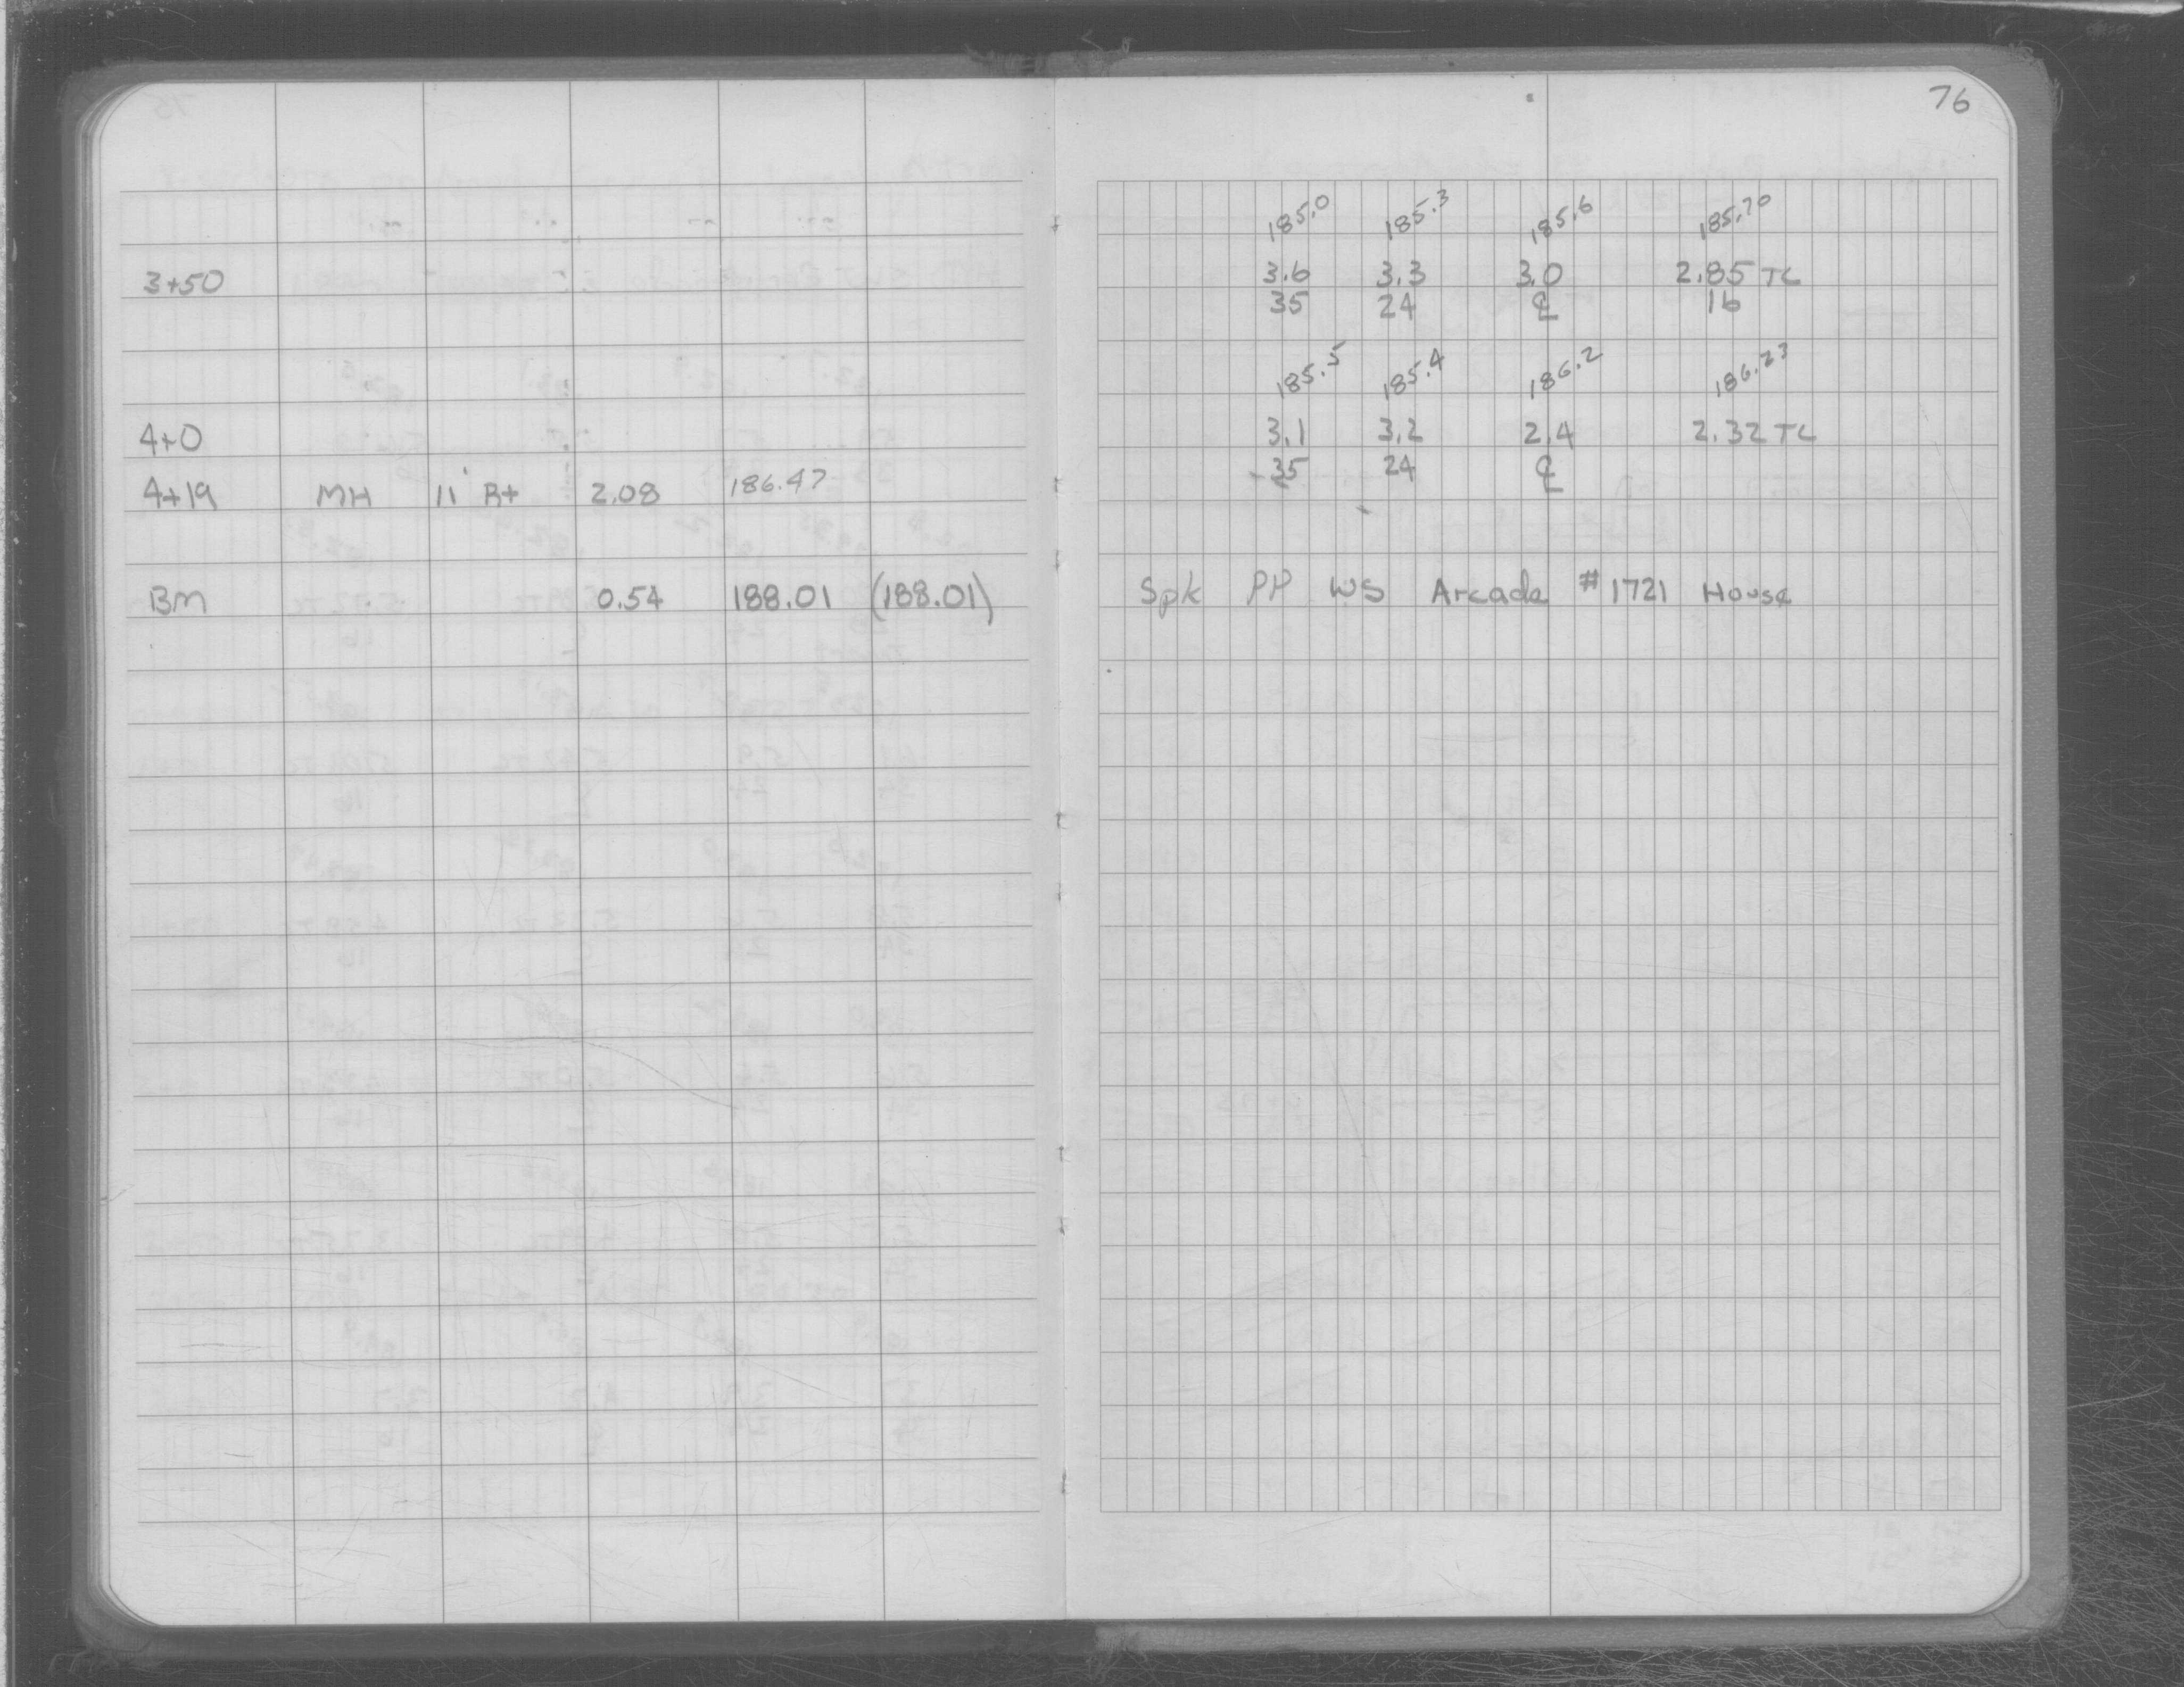 76
185.0 185.3 185.6 185.70
3+50 3.6 3.3 3.0 2.85 TC
35 24 ℄ 16
185.5 185.4 186.2 186.23
4+0 3.1 3.2 2.4 2.32 TC
35 24 ℄
4+19 MH 11' Rt 2.08 186.47
BM 0.54 188.01 (188.01) Spk PP WS Arcade #1721 House